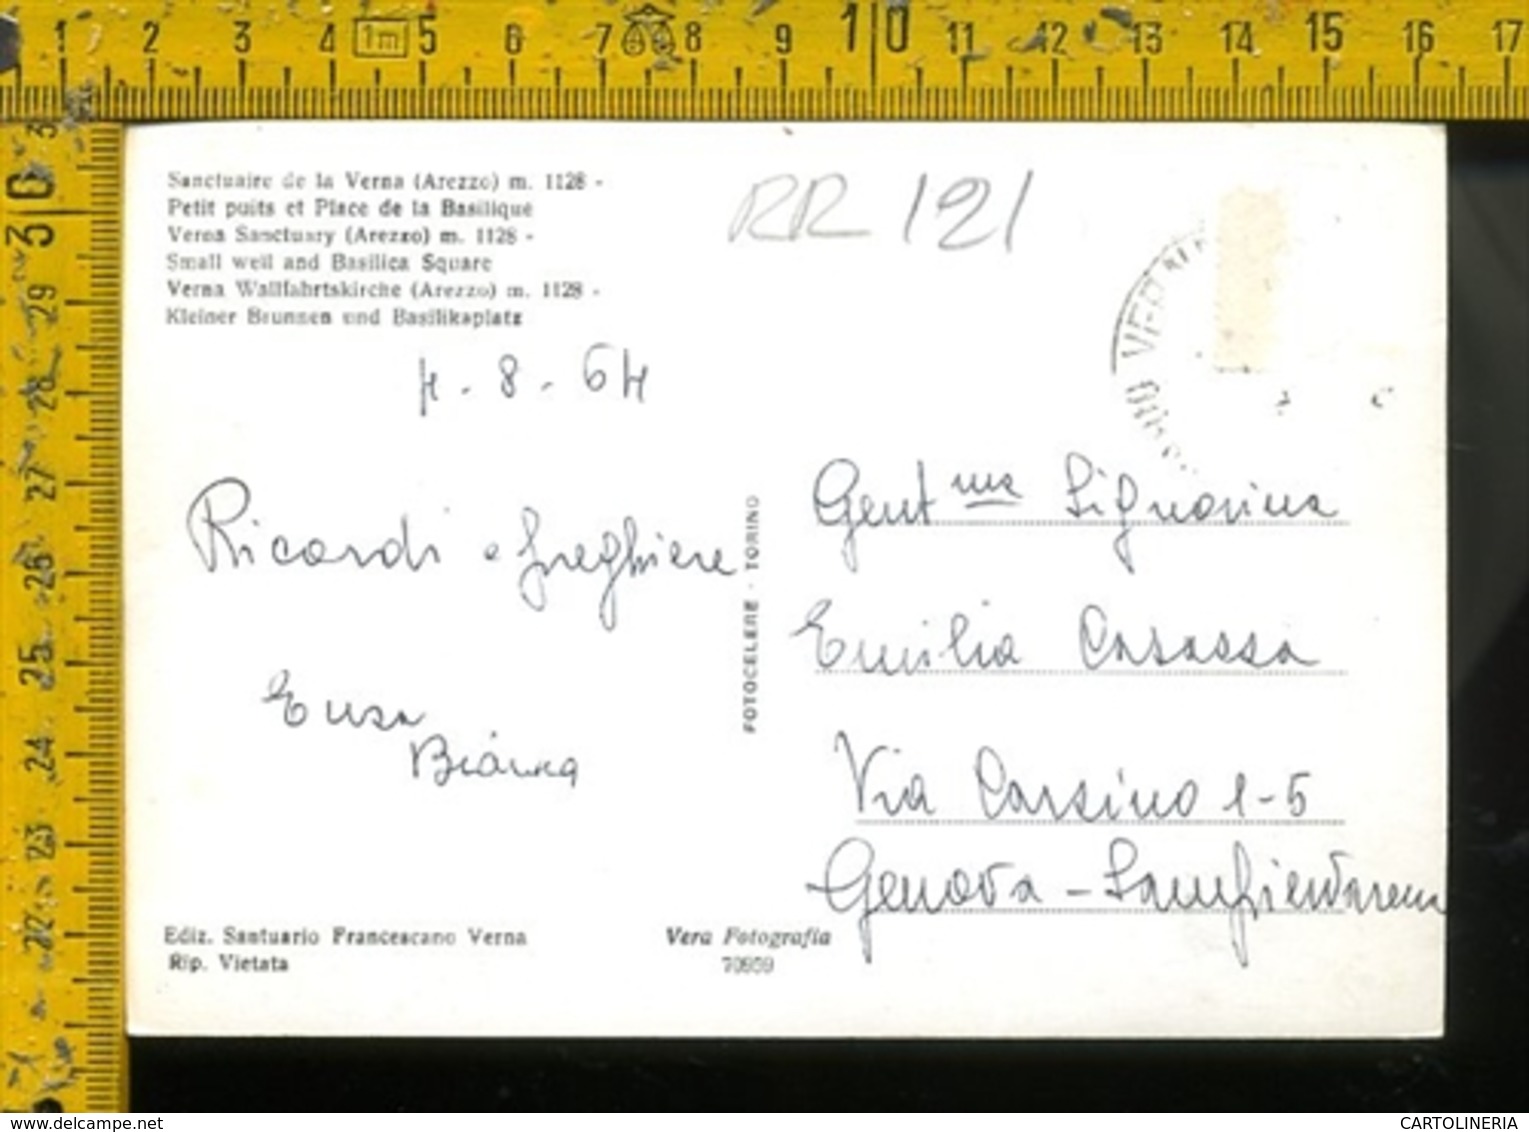 1 2 3 4 1m 5 6 7 8 9 10 11 12 13 14 15 16 17
30 29 28 27 26 25 24 23 22
Sanctuaire de la Verna (Arezzo) m. 1128 -
Petit puits et Place de la Basilique
Verna Sanctuary (Arezzo) m. 1128 -
Small well and Basilica Square
Verna Wallfahrtskirche (Arezzo) m. 1128 -
Kleiner Brunnen und Basilikaplatz
RR 121
4-8-64
Ricordi e preghiere
Enza
Bianca
FOTOCELERE - TORINO
Gent ma Signorina
Emilia Casassa
Via Corsino 1-5
Genova - Sampierdarena
Ediz. Santuario Francescano Verna
Rip. Vietata
Vera Fotografia
70959
delcampe.net
CARTOLINERIA